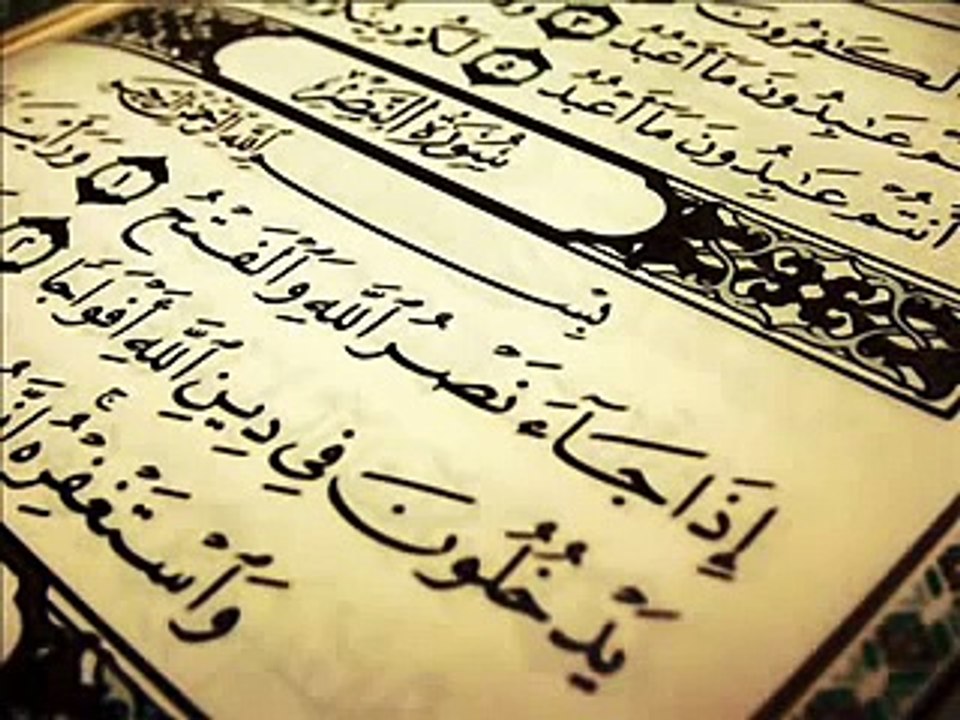 ٱلْكَٰفِرُونَ
عَٰبِدُونَ مَآ أَعْبُدُ ٣
أَنتُمْ عَٰبِدُونَ مَآ أَعْبُدُ ٥ لَكُمْ
سُورَةُ النَّصْرِ
بِسْمِ ٱللَّهِ ٱلرَّحْمَٰنِ ٱلرَّحِيمِ
إِذَا جَآءَ نَصْرُ ٱللَّهِ وَٱلْفَتْحُ ١
يَدْخُلُونَ فِي دِينِ ٱللَّهِ أَفْوَاجًا ٢
وَٱسْتَغْفِرْهُ ۚ